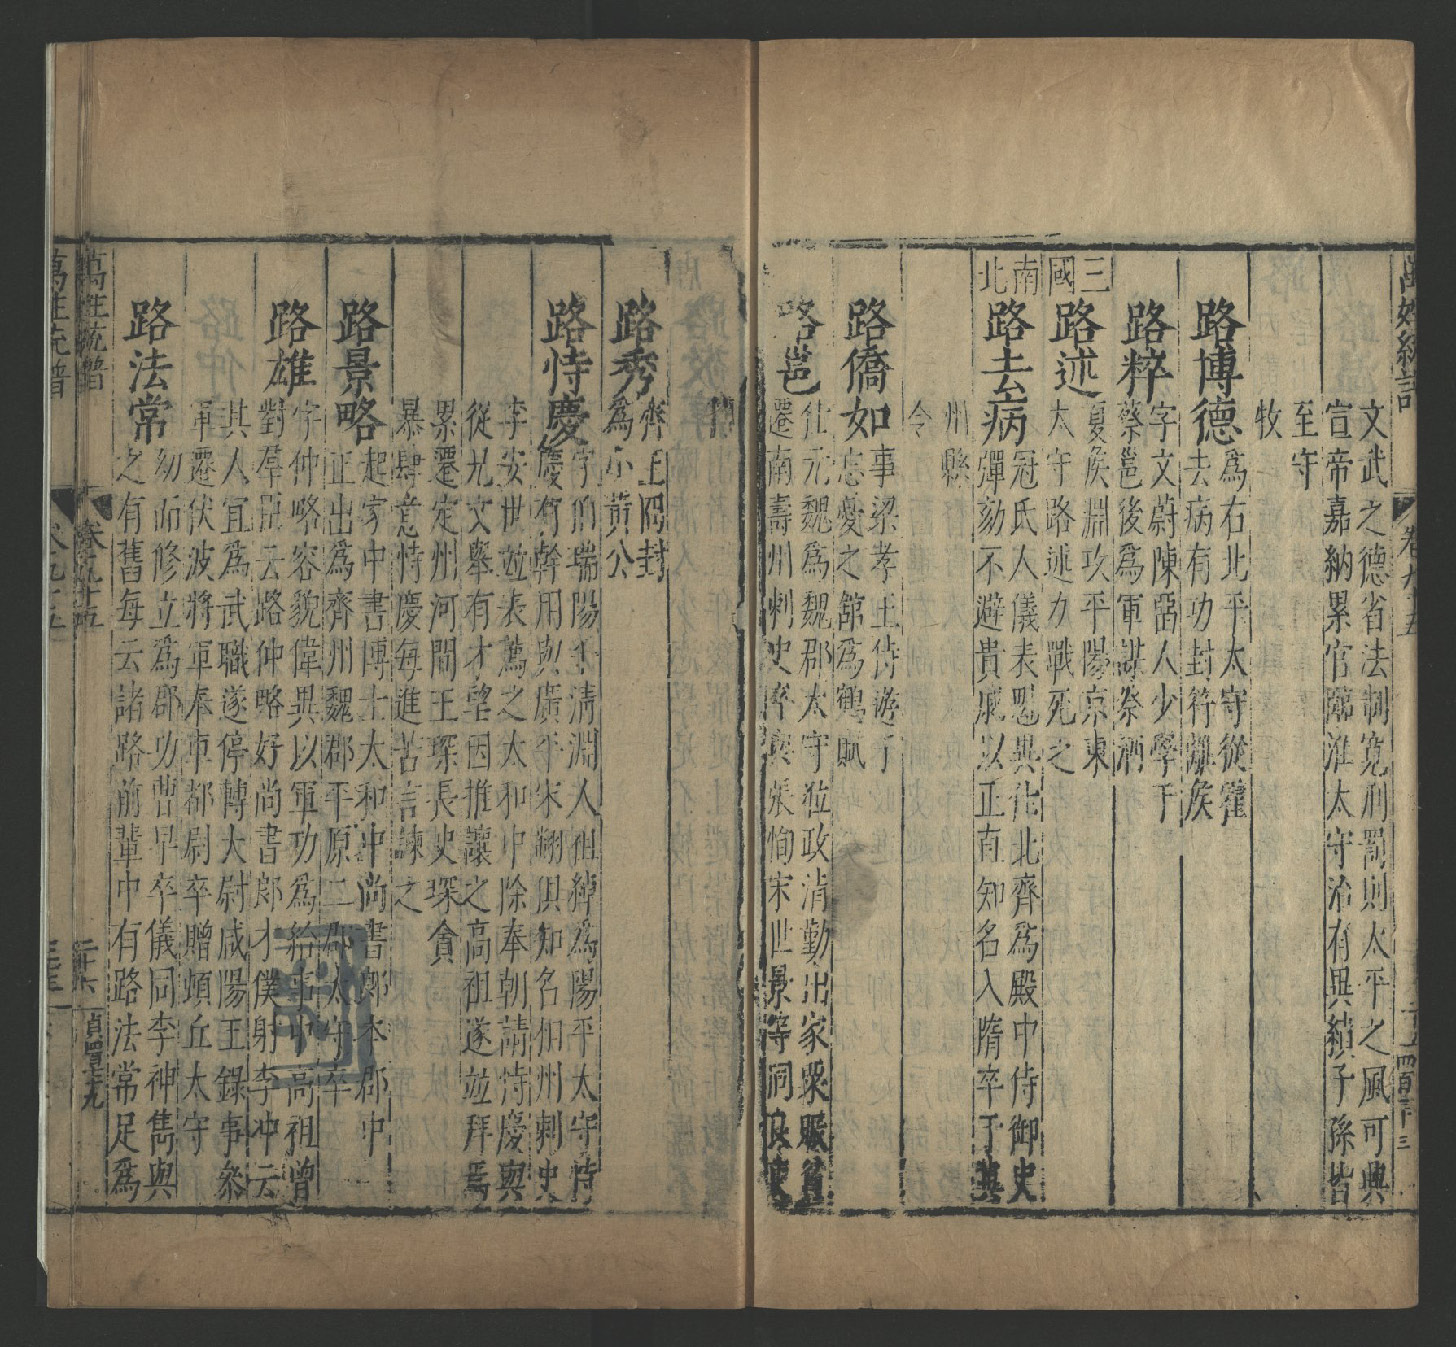 萬姓統譜 卷九十五
文武之德省法制寬刑罰則太平之風可興
宣帝嘉納累官臨淮太守治有異績子孫皆
至守
牧
路博德 為右北平太守從霍
去病有功封符離侯
路粹 字文蔚陳留人少學于
蔡邕後為軍謀祭酒
三國
夏侯淵攻平陽京東
路述 太守路述力戰死之
南北
路去病 冠氏人儀表魁異仕北齊為殿中侍御史
彈劾不避貴戚以正直知名入隋卒于
州縣
令
路僑如 事梁孝王侍遊于
忘憂之館為鶴賦
路邕 仕元魏為魏郡太守蒞政清勤出家粟賑貧
遷南壽州刺史卒與張恂宋世景等同
齊王冏封
路秀 為小黃公
路恃慶 字伯瑞陽平清淵人祖綽為陽平太守恃
慶有幹用與廣平宋翻俱知名相州刺史
李安世並表薦之太和中除奉朝請恃慶與
從兄文舉有才望因推讓之高祖遂並拜焉
累遷定州河間王琛長史琛貪
暴肆意恃慶每進苦言諫之
路景略 起家中書博士太和中尚書郎本郡中
正出為齊州魏郡平原二郡太守卒
路雄 字仲略容貌偉異以軍功為給事中高祖曾
對羣臣云路仲略好尚書郎才僕射李沖云
其人宜為武職遂停轉大尉咸陽王錄事參
軍遷伏波將軍奉車都尉卒贈頓丘太守
路法常 幼而修立為郡功曹早卒儀同李神雋與
之有舊每云諸路前輩中有路法常足為
萬姓統譜 卷九十五